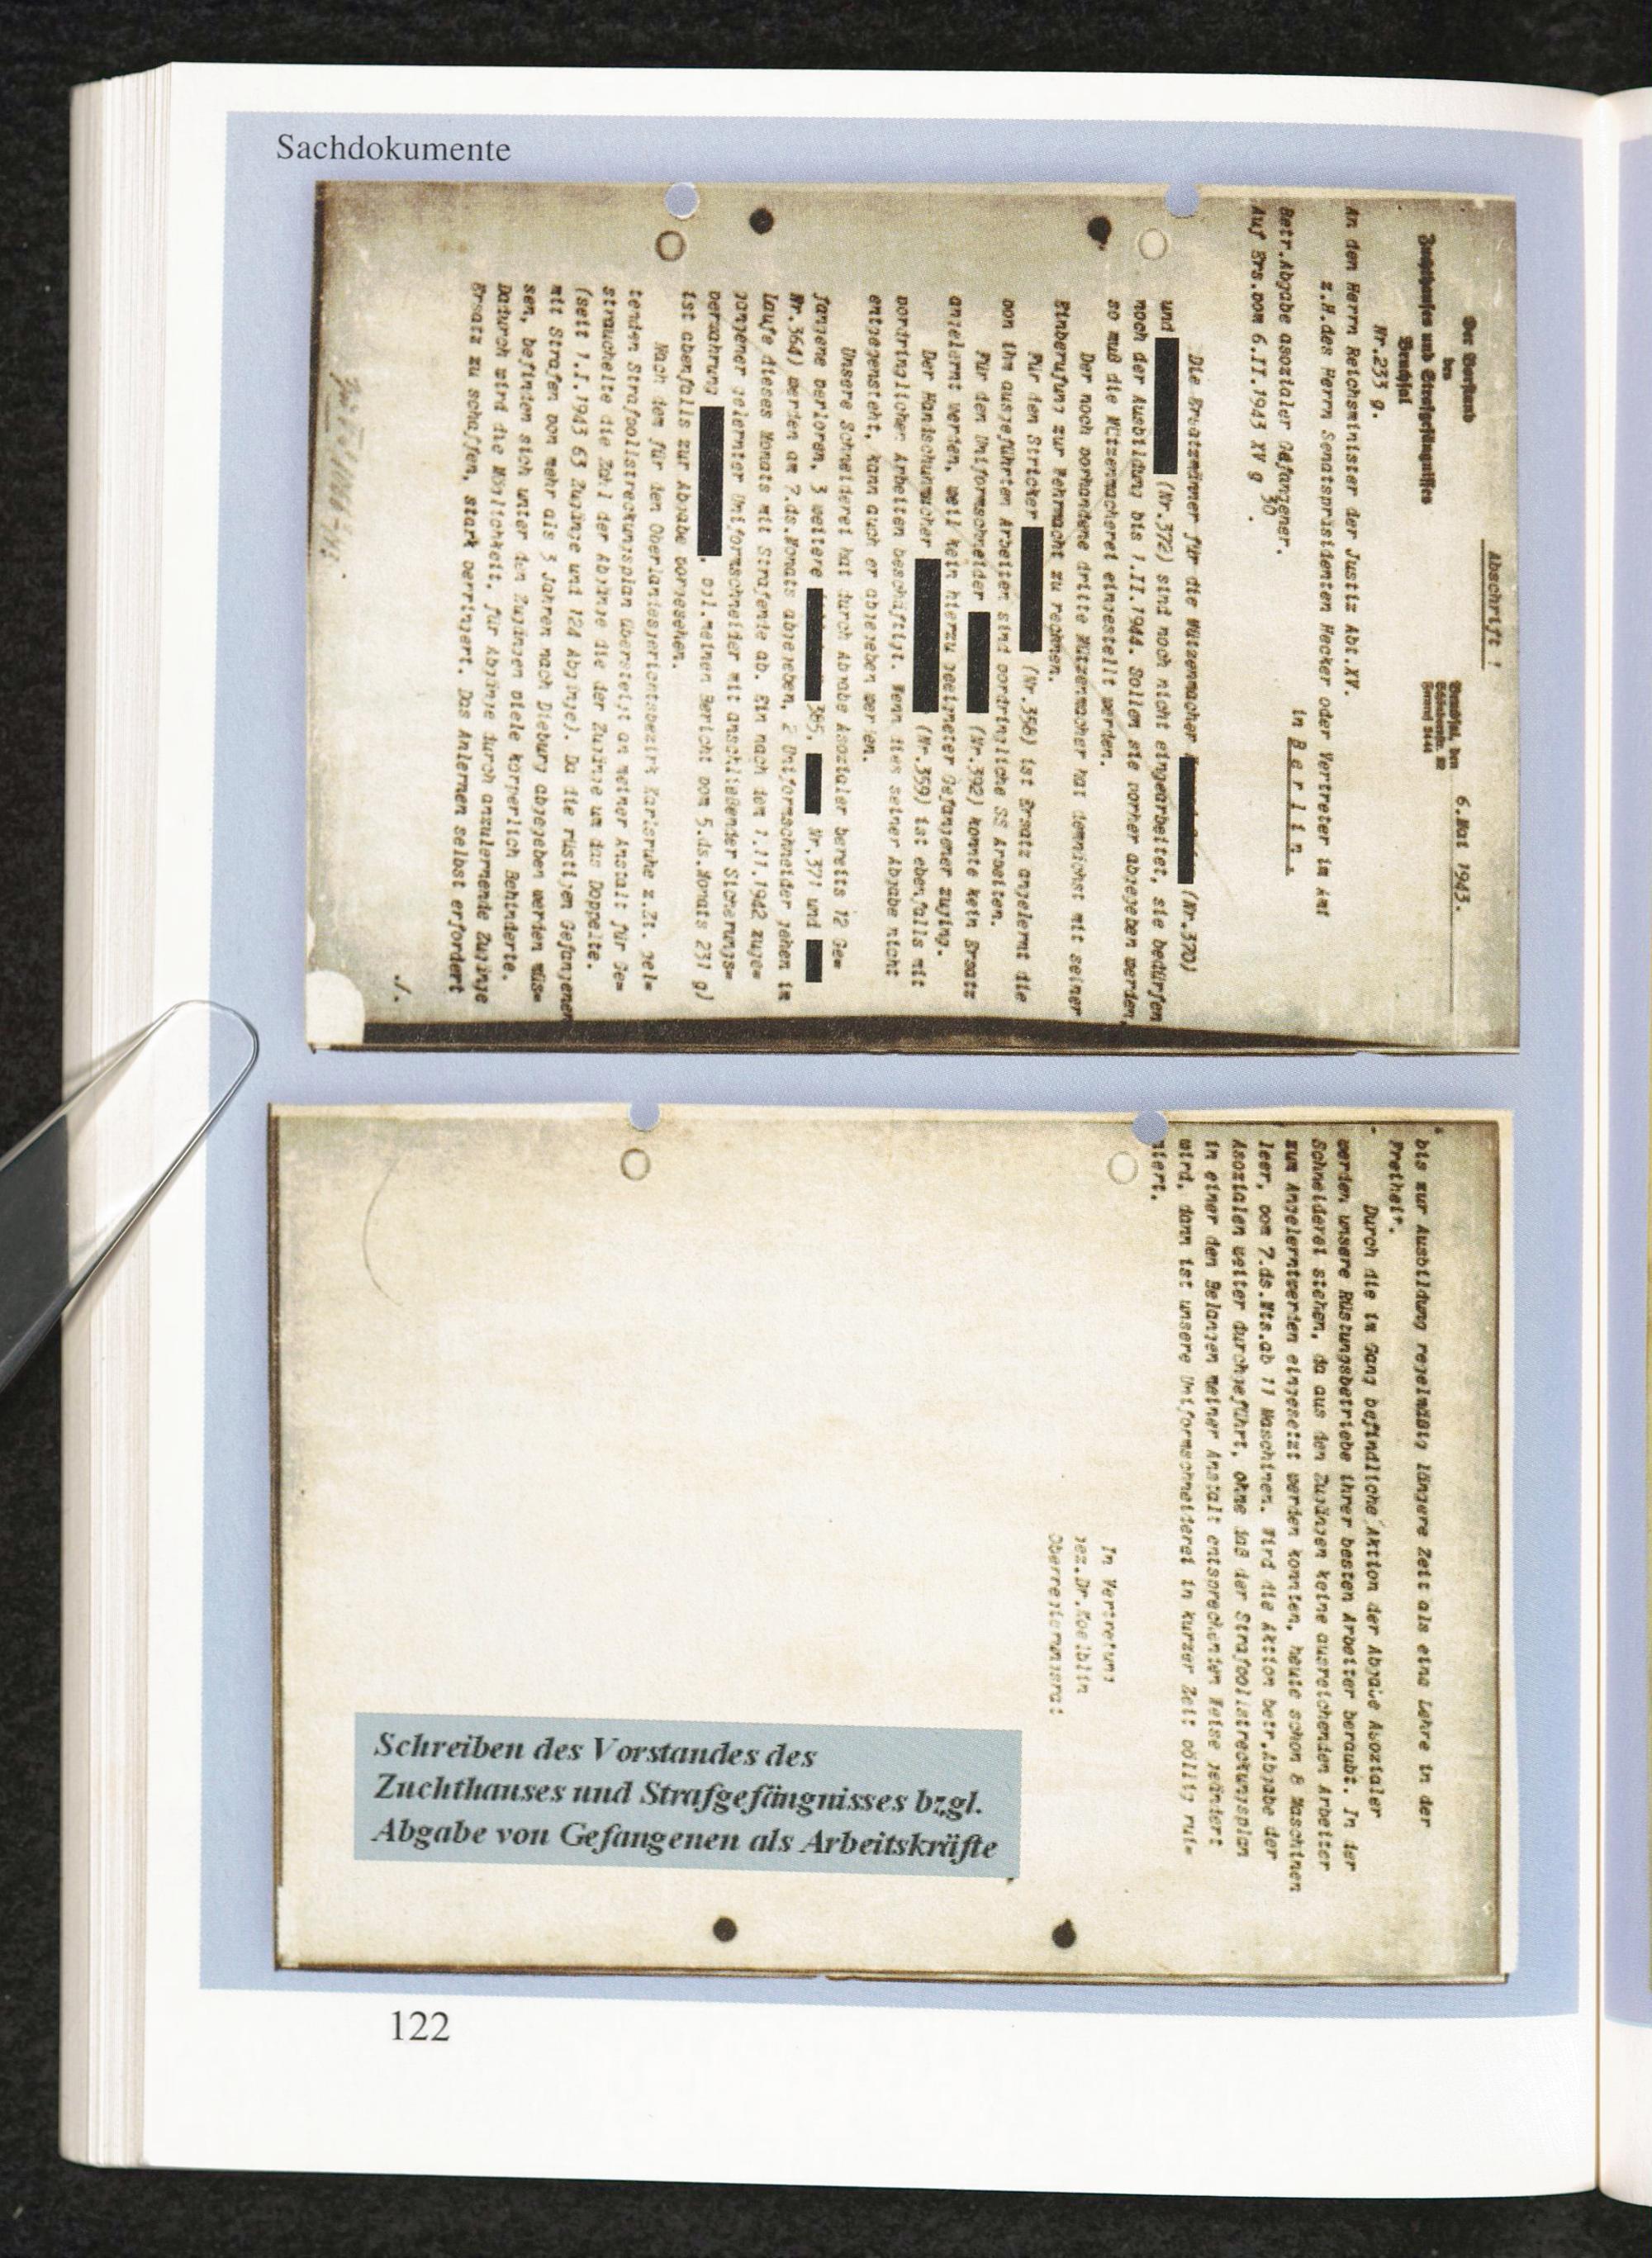 Sachdokumente
Abschrift !
Der Vorstand
des
Zuchthauses und Strafgefängnisses
Bruchsal
Nr.233 g.
Bruchsal, den
6.Mai 1943.
An den Herrn Reichsminister der Justiz Abt.XV.
z.H.des Herrn Senatspräsidenten Hecker oder Vertreter im Amt
in Berlin.
Betr.Abgabe asozialer Gefangener.
Auf Ers.vom 6.II.1943 XV g 30.
Die Ersatzmänner für die Mützenmacher (Nr.370)
und (Nr.372) sind noch nicht eingearbeitet, sie bedürfen
noch der Ausbildung bis 1.II.1944. Sollen sie vorher abgegeben werden,
so muß die Mützenmacherei eingestellt werden.
Der noch vorhandene dritte Mützenmacher hat demnächst mit seiner
Einberufung zur Wehrmacht zu rechnen.
Für den Stricker (Nr.358) ist Ersatz angelernt die
von ihm ausgeführten Arbeiten sind vordringliche SS Arbeiten.
Für den Uniformschneider (Nr.392) konnte kein Ersatz
angelernt werden, weil kein hierzu geeigneter Gefangener zuging.
Der Handschuhmacher (Nr.359) ist ebenfalls mit
vordringlichen Arbeiten beschäftigt. Wenn dies seiner Abgabe nicht
entgegensteht, kann auch er abgegeben werden.
Unsere Schneiderei hat durch Abgabe Asozialer bereits 12 Ge=
fangene verloren, 3 weitere 385, Nr.371 und
Nr.364) werden am 7.ds.Monats abgegeben, 2 Uniformschneider gehen im
Laufe dieses Monats mit Strafende ab. Ein nach dem 1.11.1942 zuge=
gangener gelernter Uniformschneider mit anschließender Sicherungs=
verwahrung , vgl.meinen Bericht vom 5.ds.Monats 231 g)
ist ebenfalls zur Abgabe vorgesehen.
Nach dem für den Oberlandesgerichtsbezirk Karlsruhe z.Zt. gel=
tenden Strafvollstreckungsplan übersteigt an meiner Anstalt für Ge=
strauchelte die Zahl der Abgänge die der Zugänge um das Doppelte.
(seit 1.I.1943 63 Zugänge und 124 Abgänge). Da die rüstigen Gefangenen
mit Strafen von mehr als 3 Jahren nach Dieburg abgegeben werden müs=
sen, befinden sich unter den Zugängen viele körperlich Behinderte.
Dadurch wird die Möglichkeit, für Abgänge durch anzulernende Zugänge
Ersatz zu schaffen, stark verringert. Das Anlernen selbst erfordert
./.
bis zur Ausbildung regelmäßig längere Zeit als eine Lehre in der
Freiheit.
Durch die im Gang befindliche Aktion der Abgabe Asozialer
werden unsere Rüstungsbetriebe ihrer besten Arbeiter beraubt. In der
Schneiderei stehen, da aus den Zugängen keine ausreichenden Arbeiter
zum Angelerntwerden eingesetzt werden konnten, heute schon 8 Maschinen
leer, vom 7.ds.Mts.ab 11 Maschinen. Wird die Aktion betr.Abgabe der
Asozialen weiter durchgeführt, ohne daß der Strafvollstreckungsplan
in einer den Belangen meiner Anstalt entsprechenden Weise geändert
wird, dann ist unsere Uniformschneiderei in kurzer Zeit völlig rui=
niert.
In Vertretung
gez.Dr.Koelblin
Oberregierungsrat
Schreiben des Vorstandes des
Zuchthauses und Strafgefängnisses bzgl.
Abgabe von Gefangenen als Arbeitskräfte
122